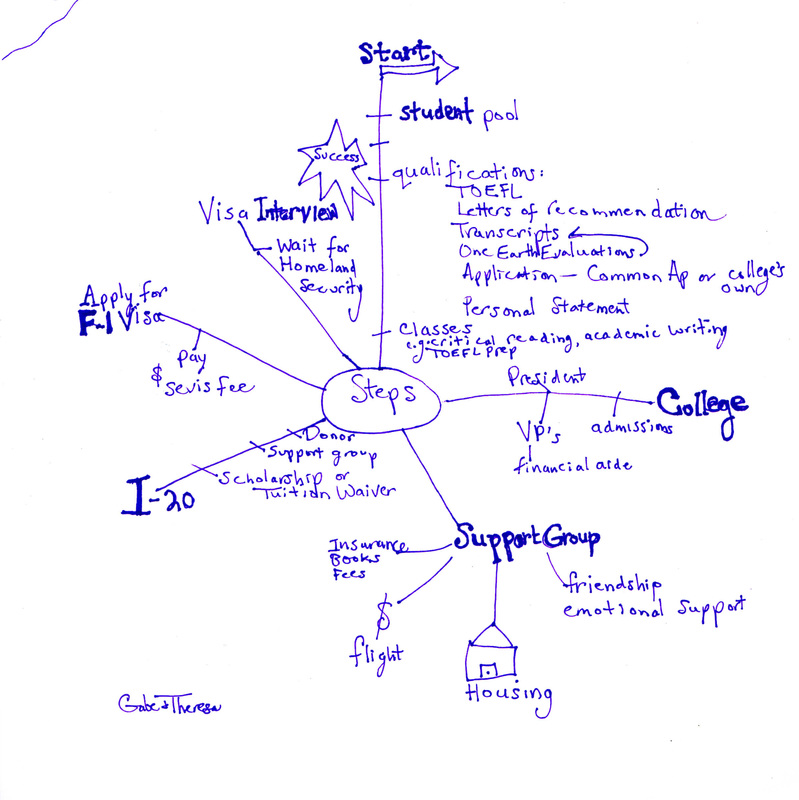 Start
student pool
Success
qualifications:
TOEFL
Letters of recommendation
Transcripts
One Earth Evaluations
Application — Common Ap or college's
own
Personal Statement
Classes
e.g. critical reading, academic writing
TOEFL Prep
Visa Interview
Wait for
Homeland
Security
Apply for
F-1 Visa
Pay
$ sevis fee
Steps
President
College
VP's
admissions
financial aide
Donor
Support group
Scholarship or
Tuition Waiver
I-20
Support Group
Insurance
Books
Fees
$
flight
Housing
friendship
emotional support
Gabe & Theresa